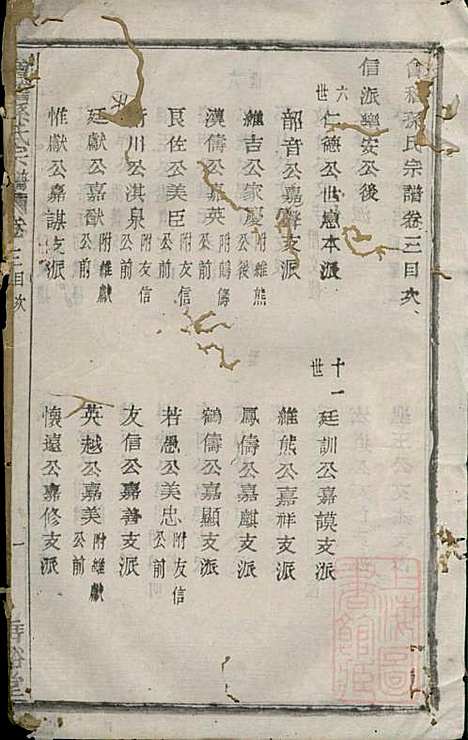 會稽孫氏宗譜卷三目次
信派樂安公後
六世 仁德公世慮本派
十一世 廷訓公嘉謨支派
韶音公嘉聲支派
維熊公嘉祥支派
維吉公家慶 附維熊公後
鳳儔公嘉麒支派
漢儔公嘉英 附鶴儔公前
鶴儔公嘉顯支派
良佐公美臣 附友信公前
若愚公美忠 附友信公前
川公淇泉 附友信公前
友信公嘉善支派
廷獻公嘉猷 附維獻公前
英越公嘉美 附維獻公前
惟獻公嘉謀支派
懷遠公嘉修支派
會稽孫氏宗譜 卷三目次 一
上海圖書館藏